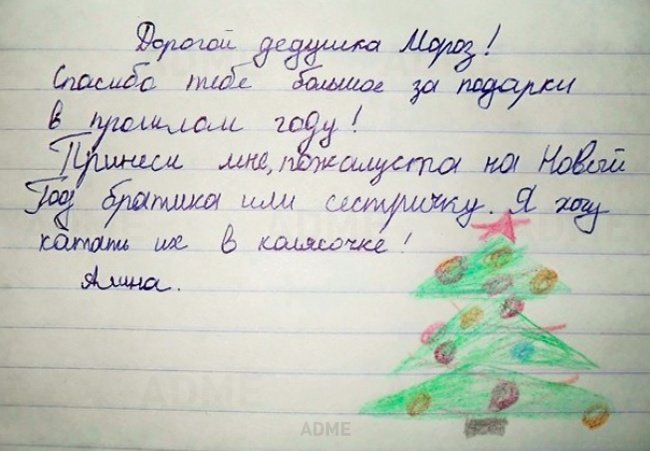 Дорогой дедушка Мороз!
Спасибо тебе большое за подарки
в прошлом году!
Принеси мне, пожалуста на Новый
Год братика или сестричку. Я хочу
катать их в колясочке!
Алина.
ADME
ADME